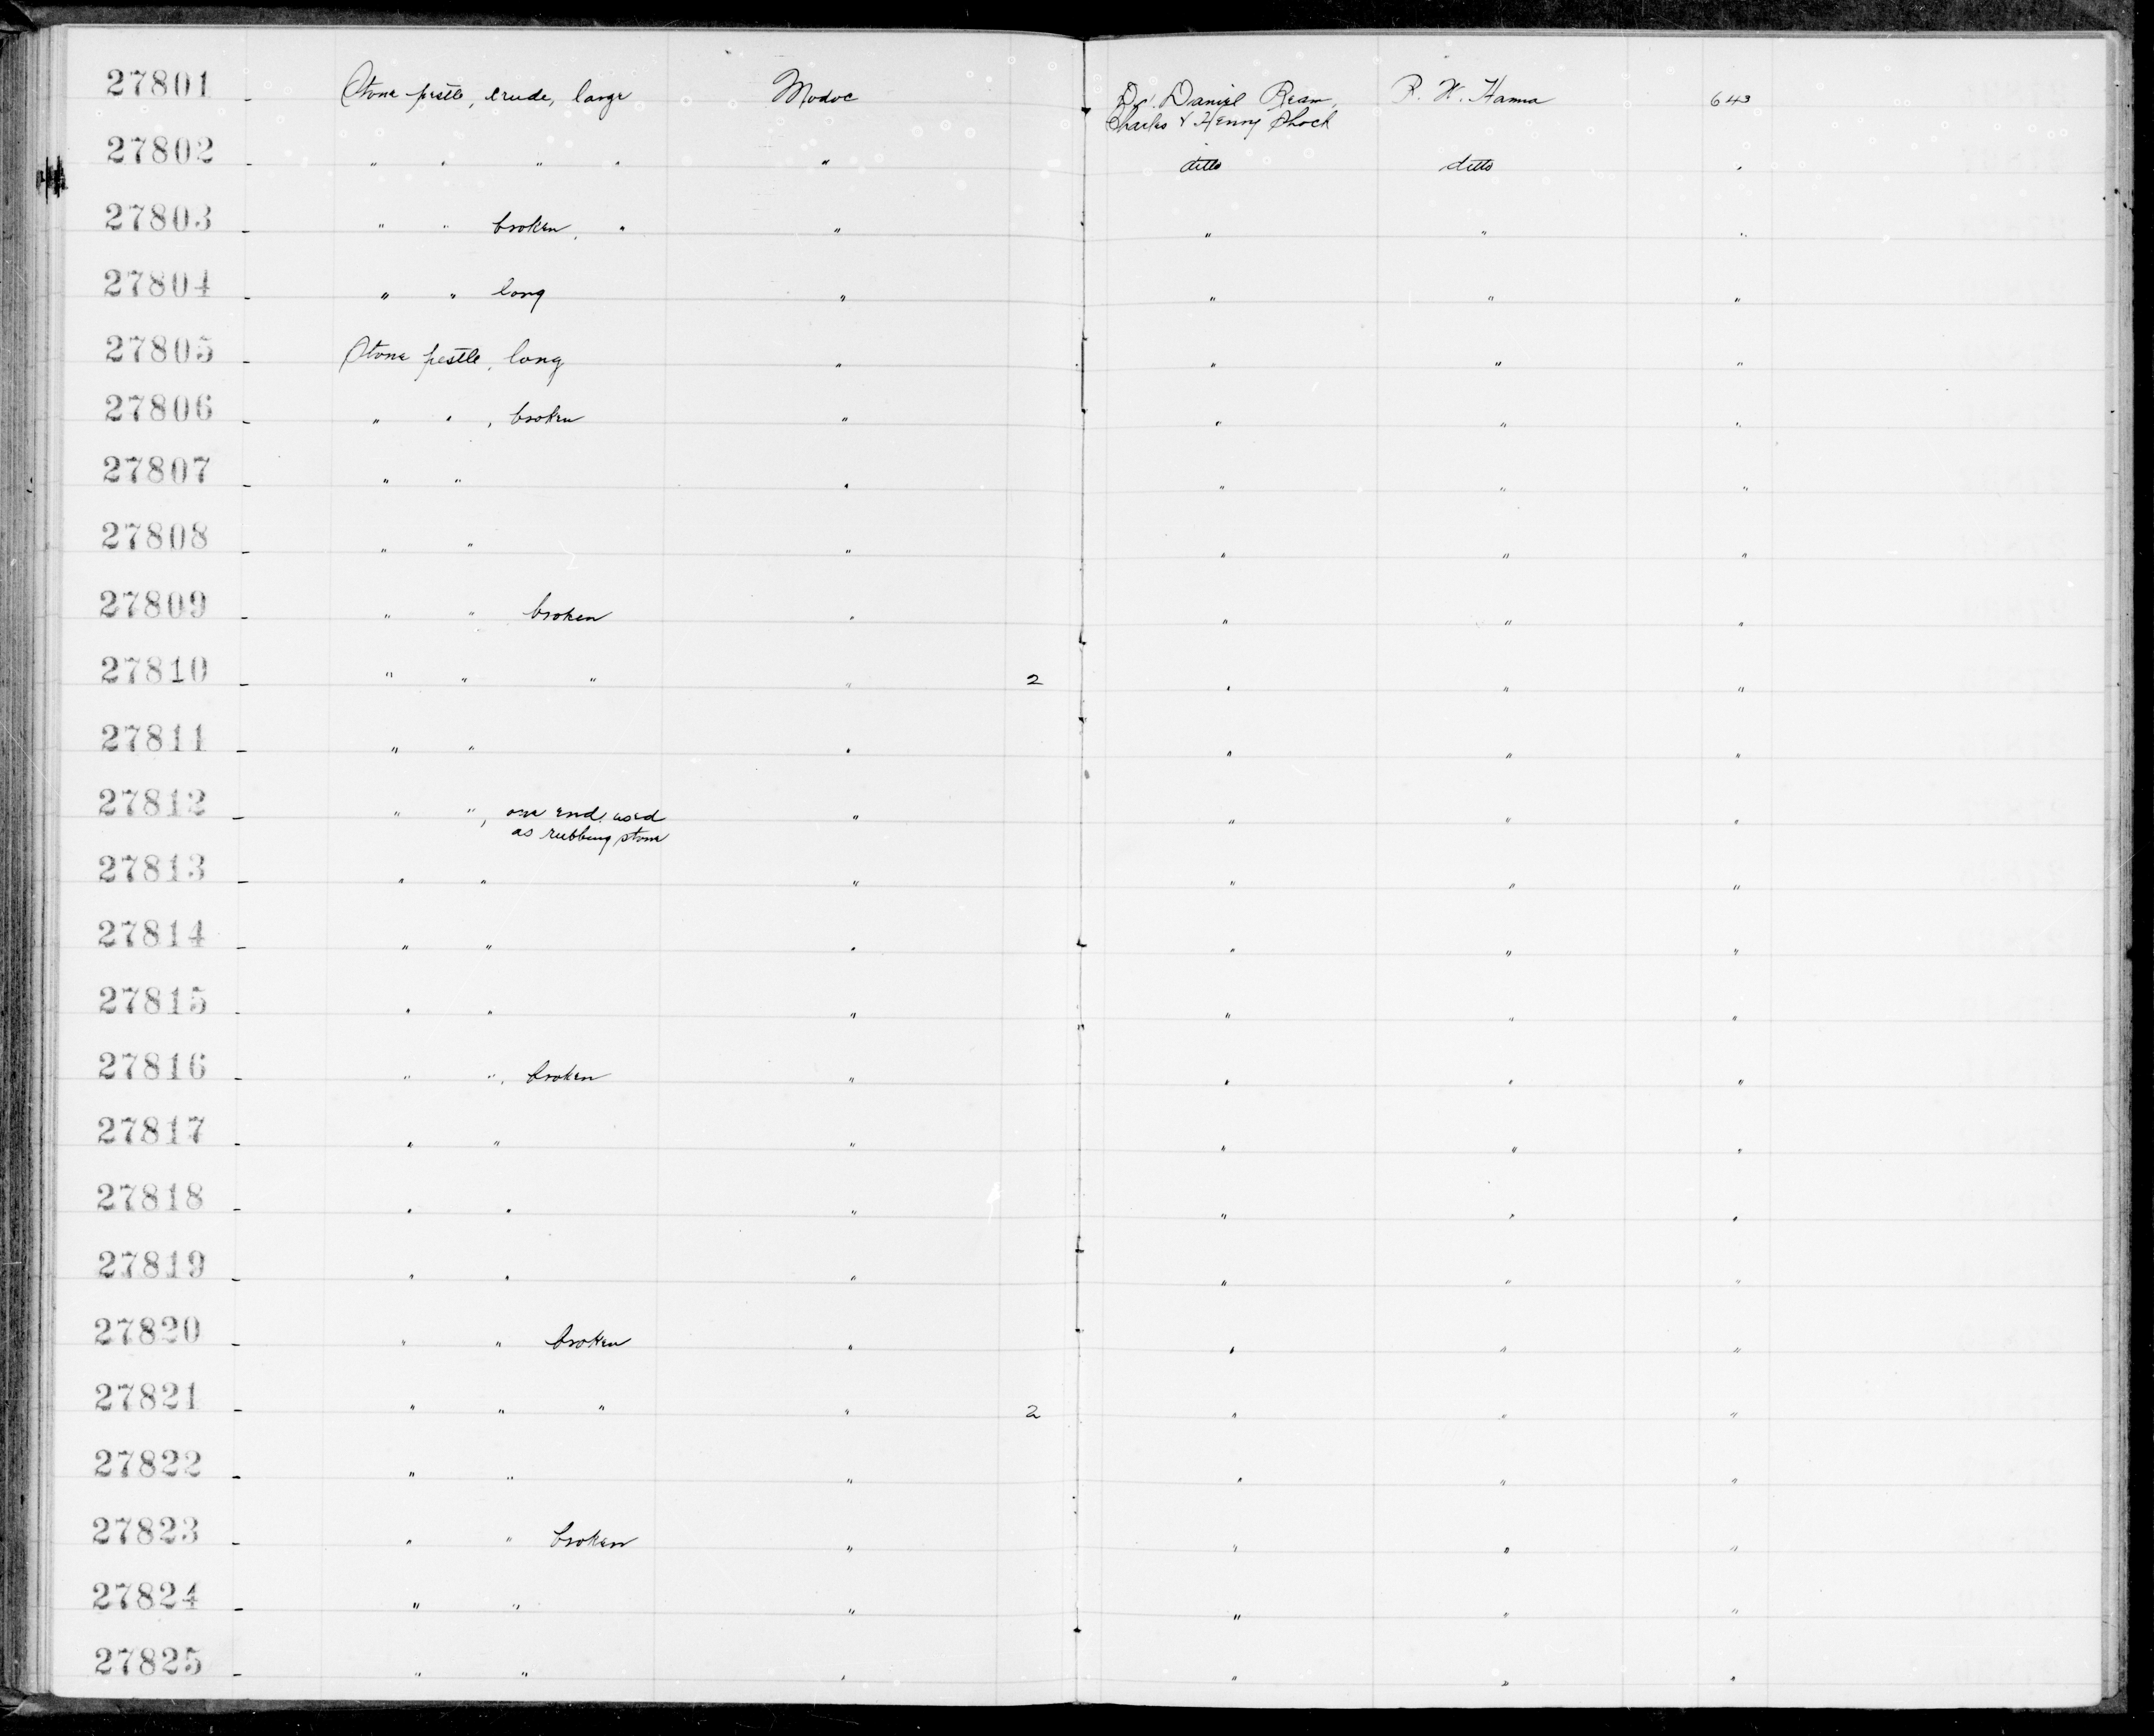 27801 - Stone pestle, crude, large Modoc Dr. Daniel Ream, R. W. Hanna 643
Charles & Henry Shock
27802 - " " " " " ditto ditto "
27803 - " " broken, " " " " "
27804 - " " long " " " "
27805 - Stone pestle, long " " " "
27806 - " " , broken " " " "
27807 - " " " " " "
27808 - " " " " " "
27809 - " " broken " " " "
27810 - " " " " 2 " " "
27811 - " " " " " "
27812 - " ", one end used " " " "
as rubbing stone
27813 - " " " " " "
27814 - " " " " " "
27815 - " " " " " "
27816 - " ", broken " " " "
27817 - " " " " " "
27818 - " " " " " "
27819 - " " " " " "
27820 - " " broken " " " "
27821 - " " " " 2 " " "
27822 - " " " " " "
27823 - " " broken " " " "
27824 - " " " " " "
27825 - " " " " " "